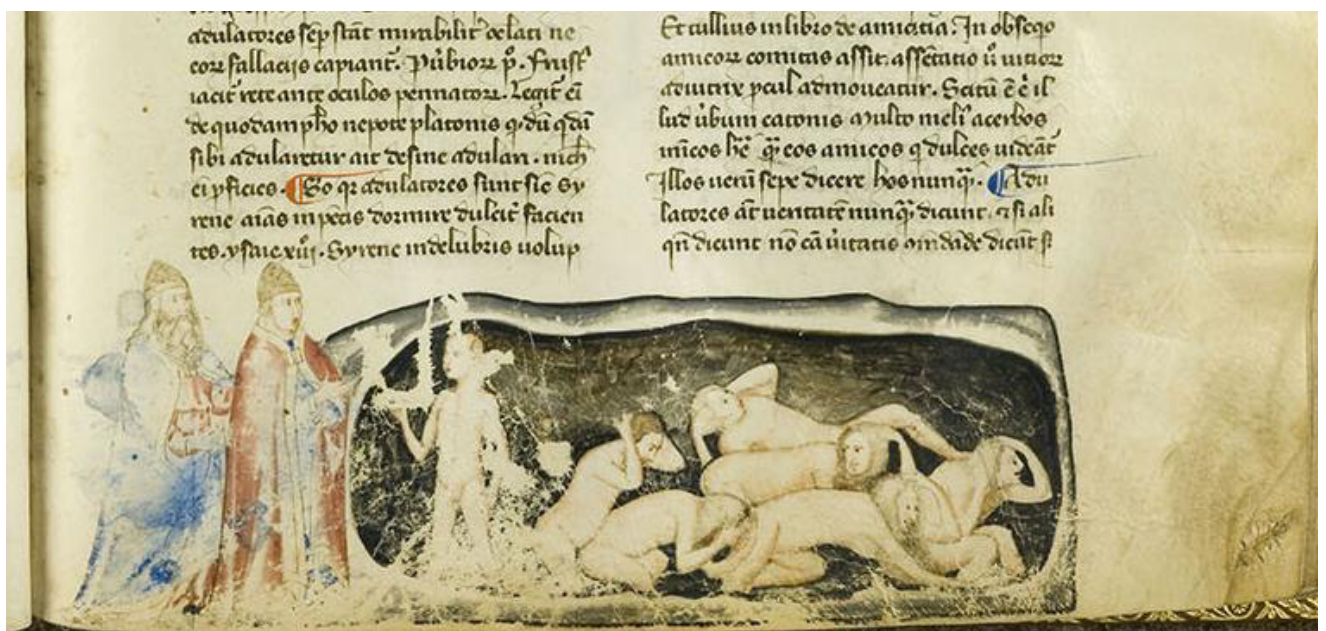 adulatores sep̄ stāt mirabilit̉ delati ne
corꝝ fallacijs capiant̄. Pŭbiorꝝ p̊. Frust̉
iacit̄ rete ante oculos pennatorꝝ. Legit̄ eī
de quodam pho nepote platonis q dū qdā
sibi adularetur ait desine adulari. nich̉
ei pficies. ¶ So qꝛ adulatores sunt sic sy
rene aīas in pctīs dormire dulcit̉ facien
tes. ysaie xiij. Syrene in delubris uolup
Et tullius in libro de amicitia. In obseqo
amicorꝝ comitas assit. assētatio ů uitiorꝝ
adiutrix pcul admoueatur. Scitū ē ē il
lud ůbum catonis Multo meli᷒ acerbos
inīcos hr̄e q̄ꝫ eos amicos q dulces uideāt̄
Illos uerū sepe dicere hos nunq̄ꝫ. ¶ Adu
latores āt ueritatē nunq̄ꝫ dicunt. ⁊ si ali
qn̄ dicunt nō cā ůitatis dicūt sꝫ